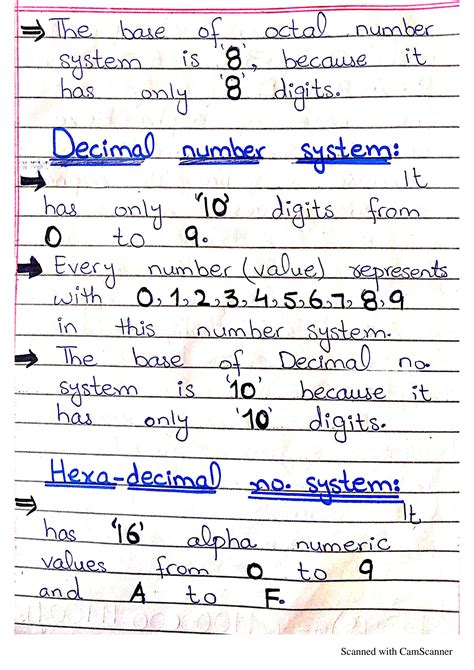 ⇒ The base of octal number
system is '8', because it
has only '8' digits.
Decimal number system:
➡ It
has only '10' digits from
0 to 9.
➡ Every number (value) represents
with 0,1,2,3,4,5,6,7,8,9
in this number system.
➡ The base of Decimal no.
system is '10' because it
has only '10' digits.
Hexa-decimal no. system:
⇒ It
has '16' alpha numeric
values from 0 to 9
and A to F.
Scanned with CamScanner